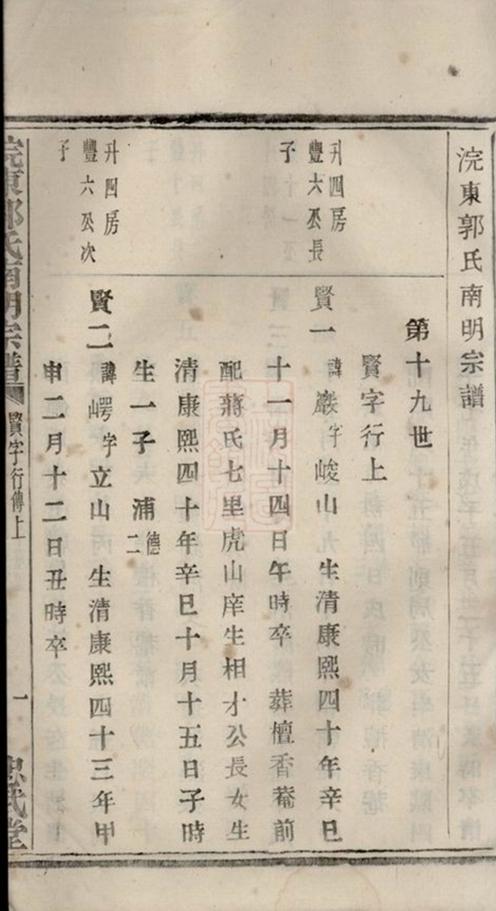 浣東郭氏南明宗譜
第十九世
賢字行上
升四房
豐六公長
子
賢一 諱巖字峻山 生清康熙四十年辛巳
十一月十四日午時卒葬檀香菴前
配蔣氏七里虎山庠生相才公長女生
清康熙四十年辛巳十月十五日子時
生一子 浦 德二
升四房
豐六公次
子
賢二 諱崿字立山 生清康熙四十三年甲
申二月十二日丑時卒
浣東郭氏南明宗譜 賢字行傳上 一 忠武堂